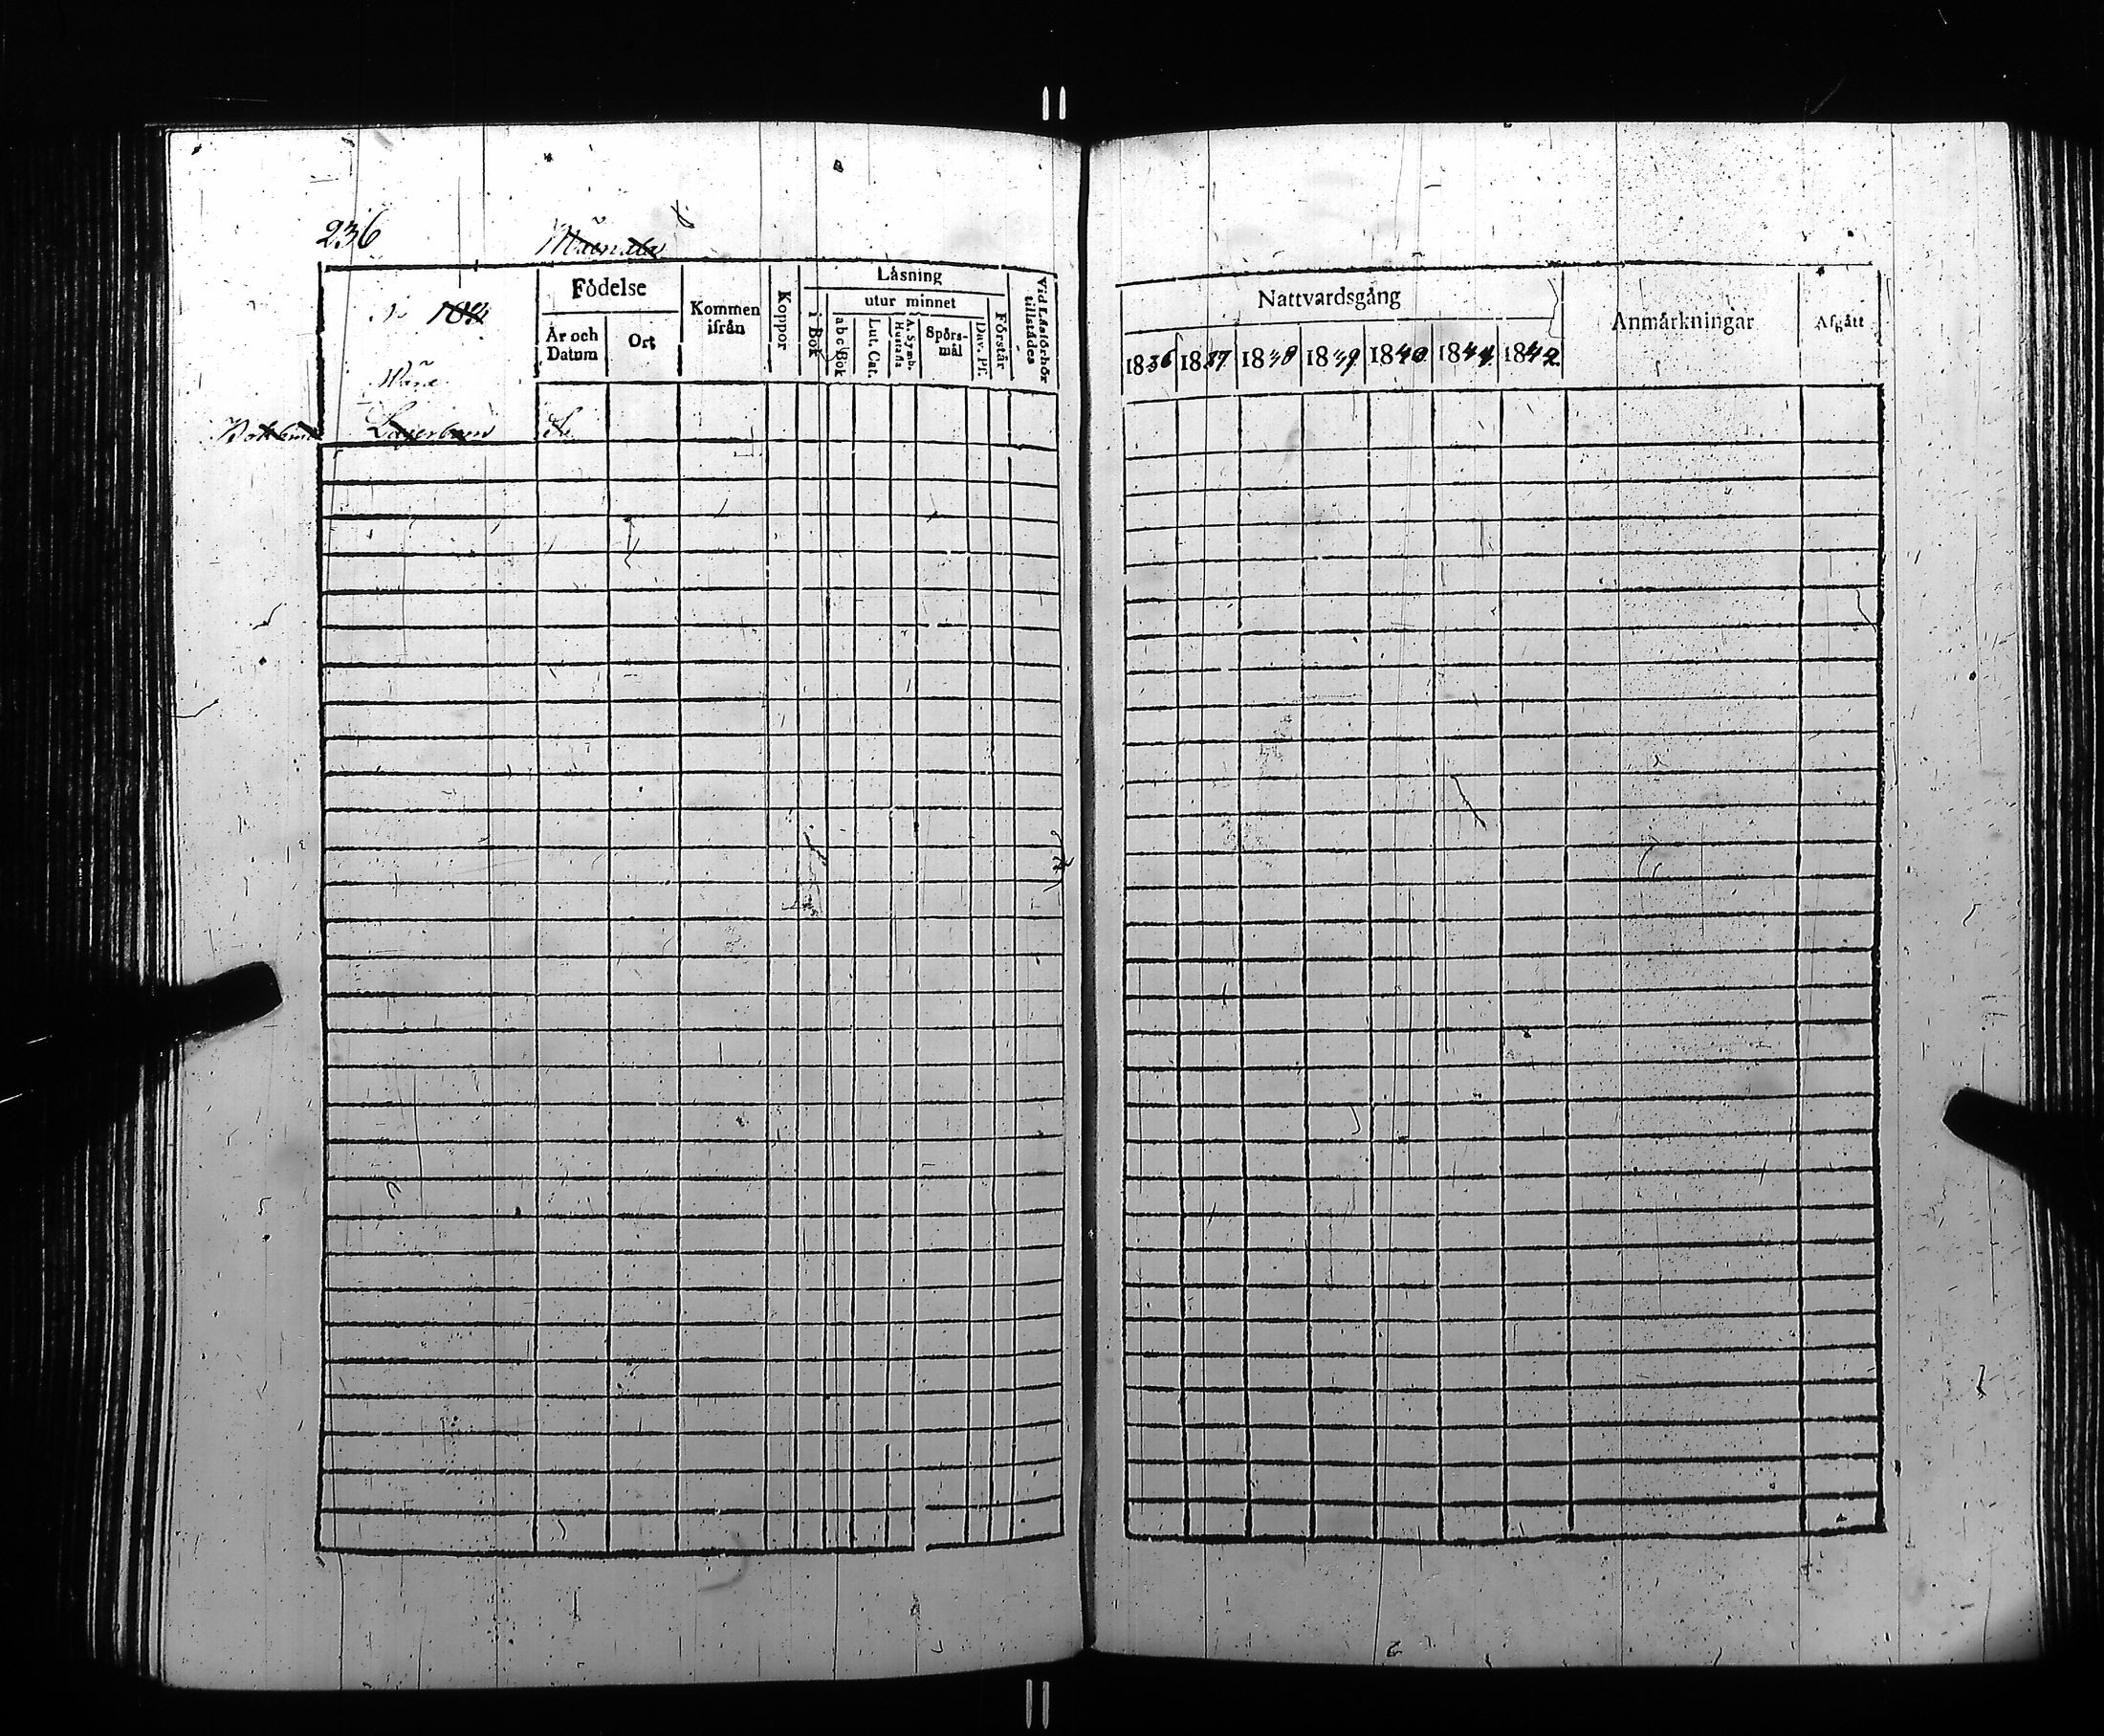 236
Födelse
År och Datum
Ort
Kommen ifrån
Koppor
Läsning
i Bok
utur minnet
a b c Bok
Lut. Cat.
A. Symb. Hustafla
Spörs-mål
Dav. Ps.
Förstår
Vid Läsförhör tillstädes
Nattvardsgång
1836 1837 1838 1839 1840 1841 1842
Anmärkningar
Afgått